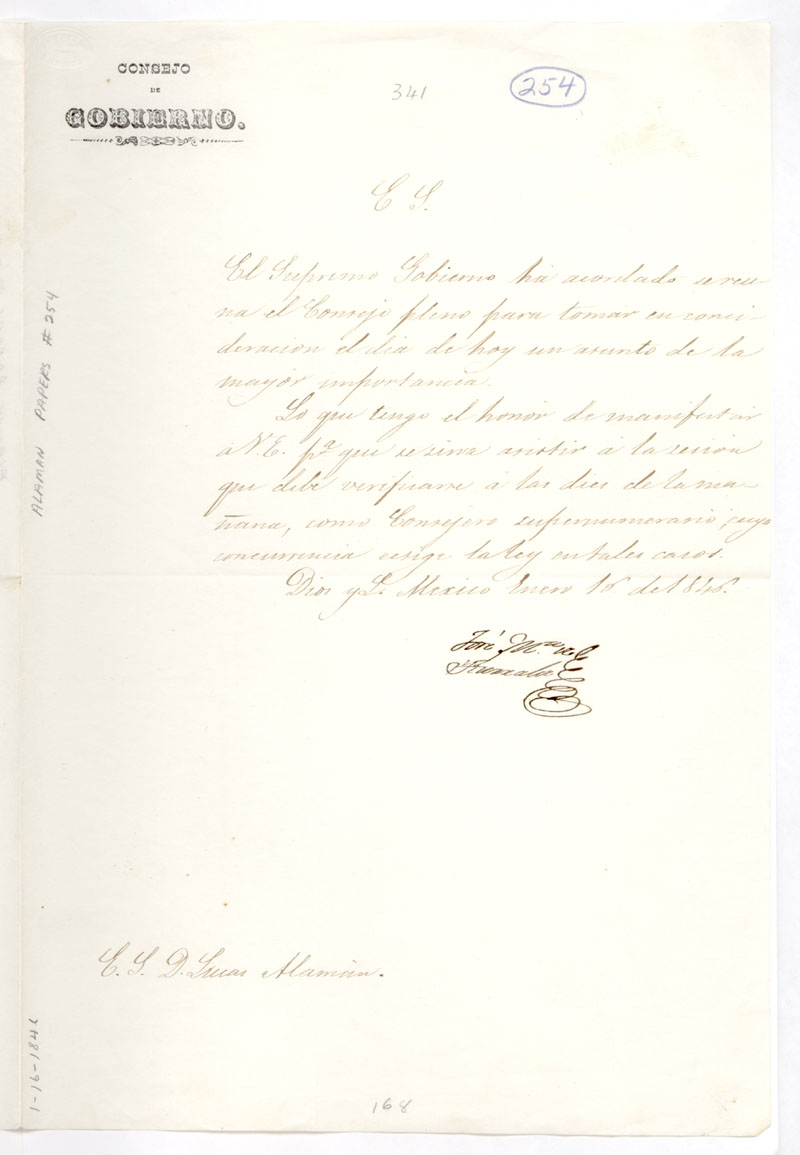 CONSEJO
DE
GOBIERNO.
341
254
E S.
El Supremo Gobierno ha acordado se reu-
na el Consejo pleno para tomar en conci-
deracion el dia de hoy un asunto de la
mayor importancia.
Lo que tengo el honor de manifestar
á V. E. pª que se sirva asistir á la sesion
que debe verificarse á las diez de la ma-
ñana, como Consejero supernumerario, cuya
concurrencia ecsige la ley en tales casos.
Dios y L. Mexico Enero 16 de 1846.
José M.
E. S. D. Lucas Alamán.
168
ALAMAN PAPERS # 254
1-16-1846